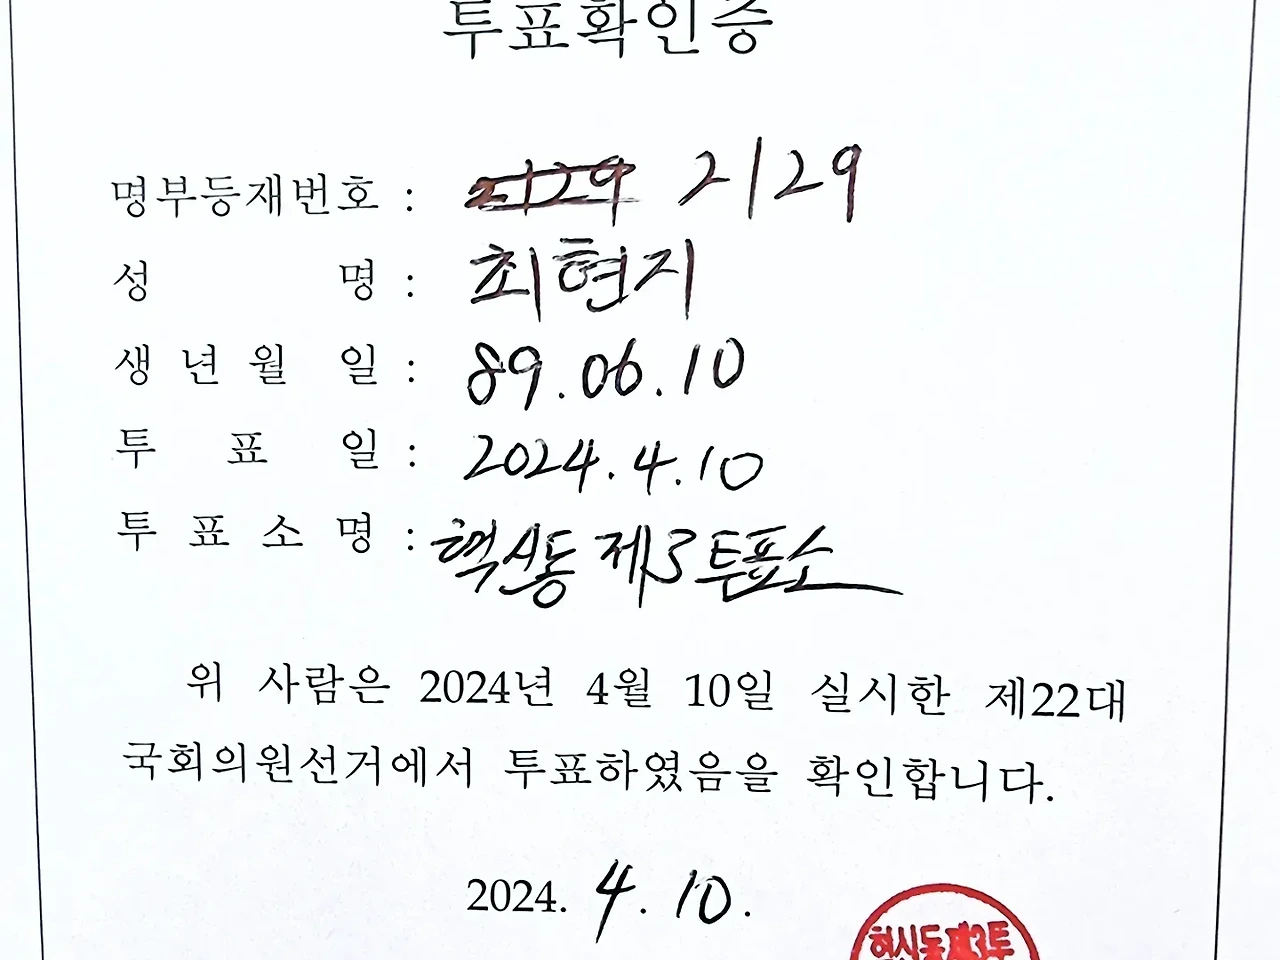 투표확인증
명부등재번호 : 2129 2129
성 명 : 최현지
생 년 월 일 : 89.06.10
투 표 일 : 2024.4.10
투 표 소 명 : 혁신동 제3투표소
위 사람은 2024년 4월 10일 실시한 제22대
국회의원선거에서 투표하였음을 확인합니다.
2024. 4. 10.
혁신동제3투